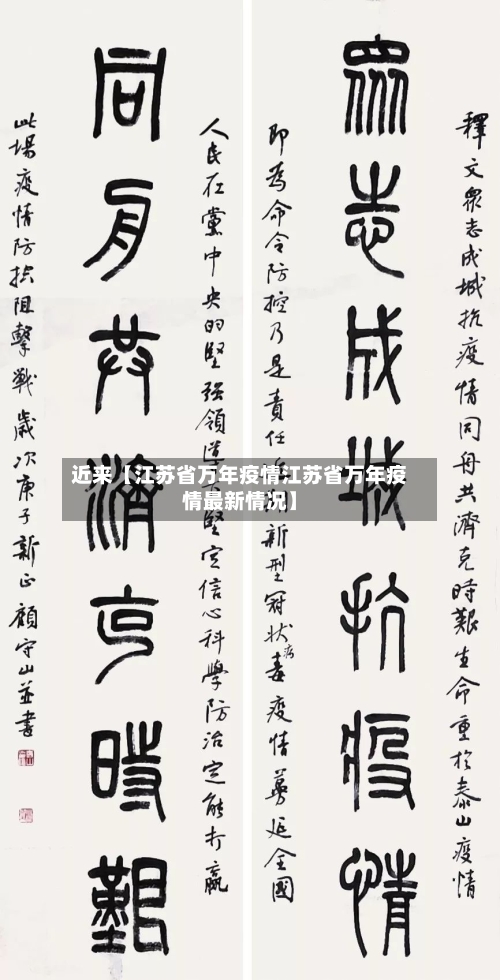 釋文眾志成城抗疫情同舟共濟克時艱生命重於泰山疫情
眾志成城抗疫情
即為命令防控乃是責任
新型冠狀病毒疫情蔓延全國
人民在黨中央的堅強領導
堅定信心科學防治定能打贏
同舟共濟克時艱
此場疫情防控阻擊戰歲次庚子新正顧守山並書
近来【江苏省万年疫情江苏省万年疫
情最新情况】